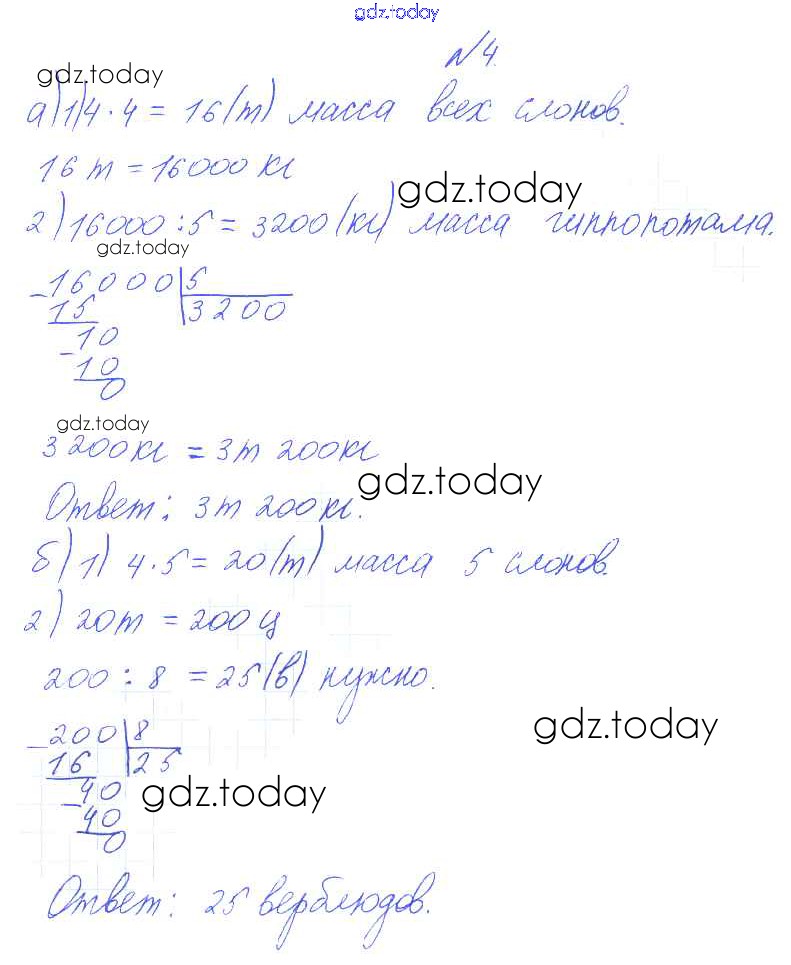 gdz.today
№4.
gdz.today
а)1)4·4 = 16(т) масса всех слонов.
16 т = 16000 кг
gdz.today
2)16000 :5 = 3200(кг) масса гиппопотама.
gdz.today
- 16000 5
15 3200
10
- 10
0
gdz.today
3200кг = 3т 200кг
gdz.today
Ответ: 3т 200кг.
б)1) 4·5 = 20(т) масса 5 слонов.
2) 20т = 200 ц
200 : 8 = 25(в) нужно.
gdz.today
- 200 8
16 25
- 40
40
0
gdz.today
Ответ: 25 верблюдов.